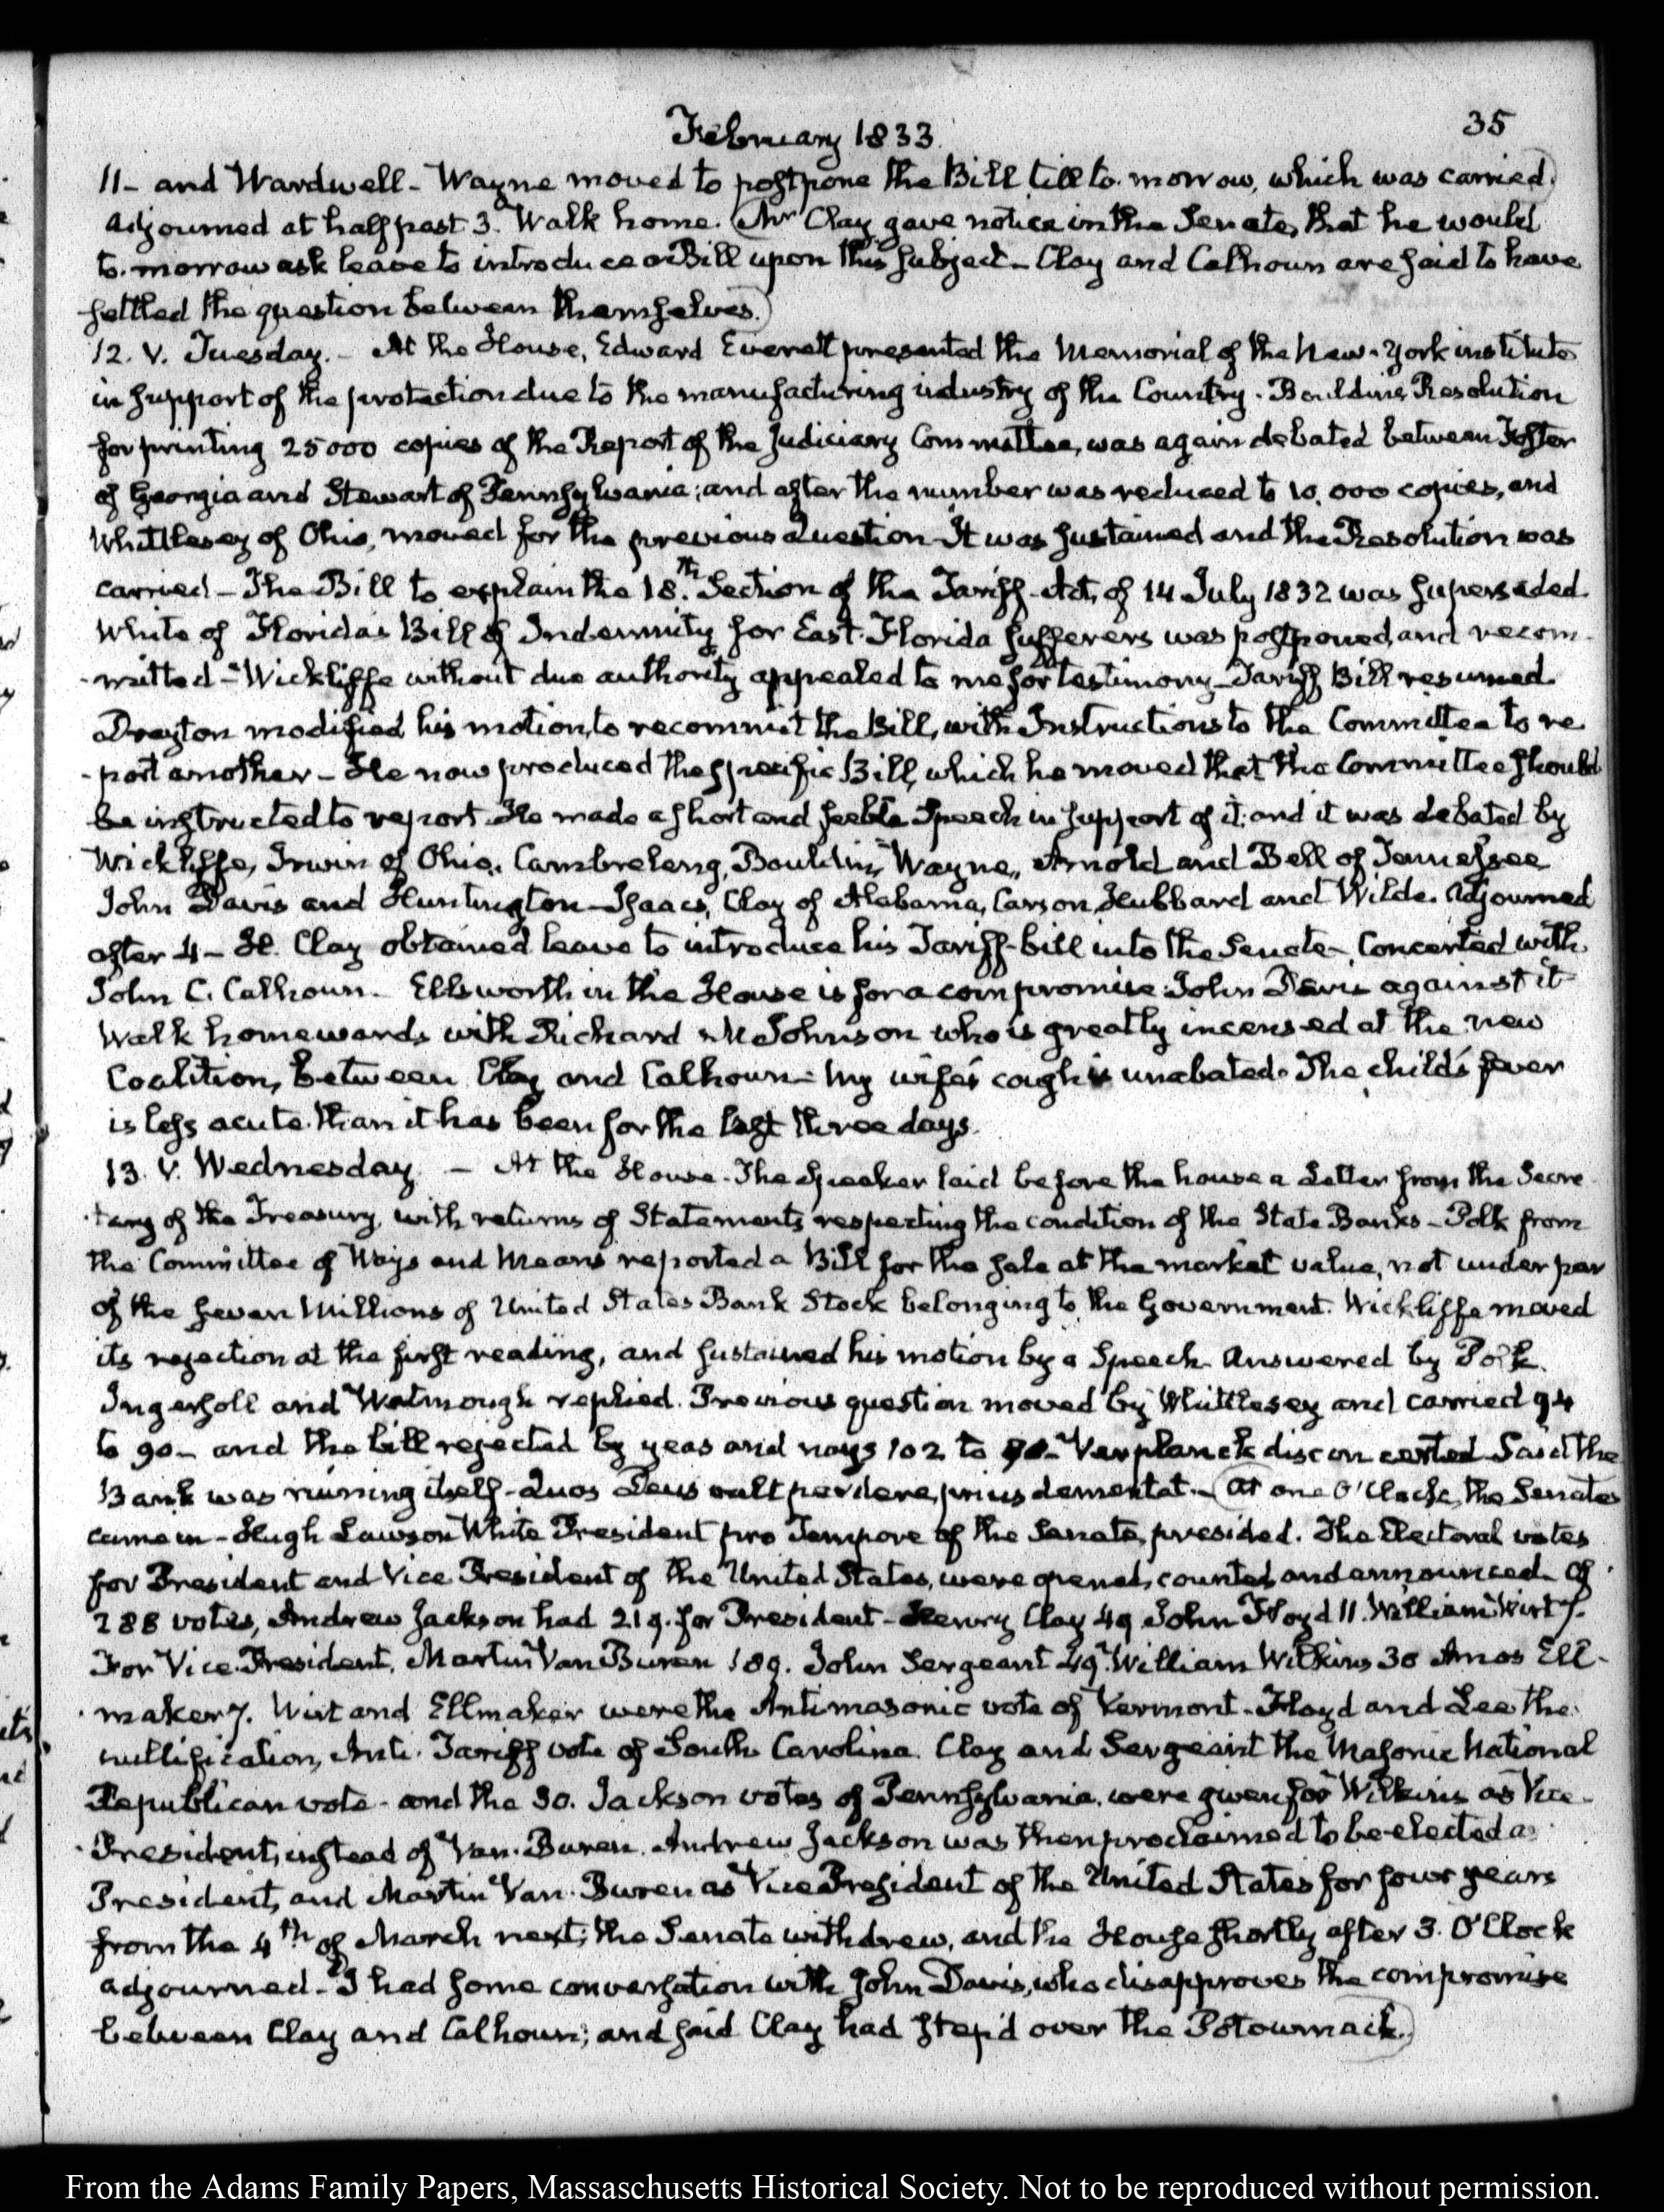 February 1833.
35
11- and Wardwell - Wayne moved to postpone the Bill till to-morrow, which was carried.
adjourned at half past 3. Walk home. Mr Clay gave notice in the Senate, that he would
to-morrow ask leave to introduce a Bill upon this subject - Clay and Calhoun are said to have
settled the question between themselves.
12. V. Tuesday. - At the House, Edward Everett presented the Memorial of the New-York institute
in support of the protection due to the manufacturing industry of the Country. Bouldin's Resolution
for printing 25000 copies of the Report of the Judiciary Committee, was again debated between Foster
of Georgia and Stewart of Pennsylvania; and after the number was reduced to 10,000 copies, and
Whittlesey of Ohio, moved for the previous Question - It was sustained and the Resolution was
carried - The Bill to explain the 18.th Section of the Tariff-Act, of 14 July 1832 was superseded.
White of Florida's Bill of Indemnity for East-Florida sufferers was postponed, and recom-
-mitted - Wickliffe without due authority appealed to me for testimony - Tariff Bill resumed.
Drayton modified his motion, to recommit the Bill, with Instructions to the Committee to re-
-port another - He now produced the specific Bill, which he moved that the Committee should
be instructed to report. He made a short and feeble Speech in support of it; and it was debated by
Wickliffe, Irwin of Ohio, Cambreleng, Bouldin, Wayne, Arnold and Bell of Tennessee
John Davis and Huntington - Isaacs, Clay of Alabama, Carson, Hubbard and Wilde. Adjourned
after 4 - H. Clay obtained leave to introduce his Tariff-bill into the Senate - Concerted with
John C. Calhoun - Ellsworth in the House is for a compromise: John Davis against it
Walk homewards with Richard M Johnson who is greatly incensed at the new
Coalition, between Clay and Calhoun - My wife's cough is unabated. The child's fever
is less acute than it has been for the last three days.
13. V. Wednesday. - At the House. The Speaker laid before the house a Letter from the Secre-
-tary of the Treasury, with returns of Statements respecting the condition of the State Banks - Polk from
the Committee of Ways and Means reported a Bill for the sale at the market value, not under par
of the seven Millions of United States Bank Stock belonging to the Government. Wickliffe moved
its rejection at the first reading, and sustained his motion by a Speech - Answered by Polk.
Ingersoll and Watmough replied. Previous question moved by Whittlesey and carried 94
to 90 - and the bill rejected by yeas and nays 102 to Verplanck disconcerted. Said the
Bank was ruining itself - Quos Deus vult perdere, prius dementat. - At one O'Clock, the Senate
came in - Hugh Lawson White President pro Tempore of the Senate, presided. The Electoral votes
for President and Vice President of the United States, were opened, counted and announced. Of
288 votes, Andrew Jackson had 219. for President - Henry Clay 49 John Floyd 11. William Wirt 7.
For Vice-President, Martin Van Buren 189. John Sergeant 49. William Wilkins 30 Amos Ell-
-maker 7. Wirt and Ellmaker were the Antimasonic vote of Vermont - Floyd and Lee the
nullification, Anti-Tariff vote of South Carolina. Clay and Sergeant the Masonic National
Republican vote - and the 30. Jackson votes of Pennsylvania, were given for Wilkins as Vice-
-President, instead of Van-Buren. Andrew Jackson was then proclaimed to be elected as
President, and Martin Van-Buren as Vice President of the United States for four years
from the 4th of March next; the Senate withdrew, and the House shortly after 3. O'Clock
adjourned - I had some conversation with John Davis, who disapproves the compromise
between Clay and Calhoun; and said Clay had step'd over the Potowmack.
From the Adams Family Papers, Massachusetts Historical Society. Not to be reproduced without permission.